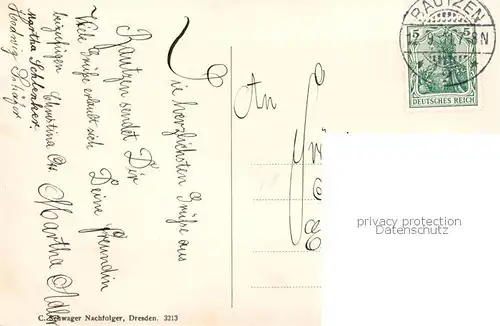 Die herzlichsten Grüße aus
Bautzen sendet Dir
Deine Freundin
Martha Adler
Viele Grüße erlaubt sich
beizufügen Christina
Martha Schlenker.
Hedwig Schäfer
An
BAUTZEN
5 5
DEUTSCHES REICH
privacy protection
Datenschutz
C. Schwager Nachfolger, Dresden. 3213